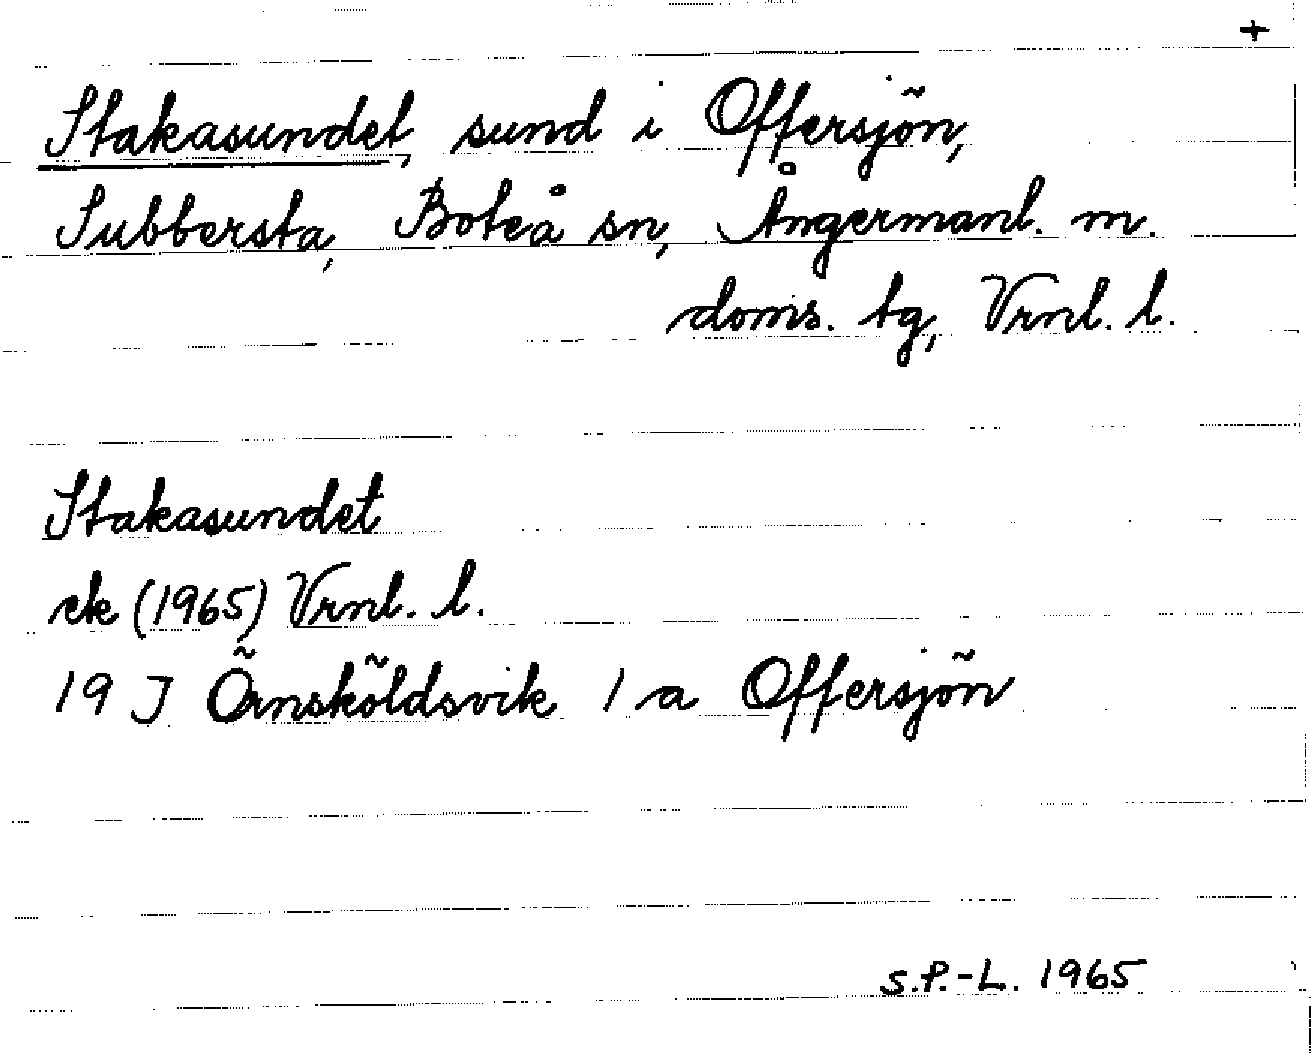 +
Stakasundet, sund i Offersjön,
Subbersta, Boteå sn, Ångermanl. m.
doms. tg, Vrnl. l.
Stakasundet
ek (1965) Vrnl. l.
19 J Örnsköldsvik 1 a Offersjön
S.P.-L. 1965